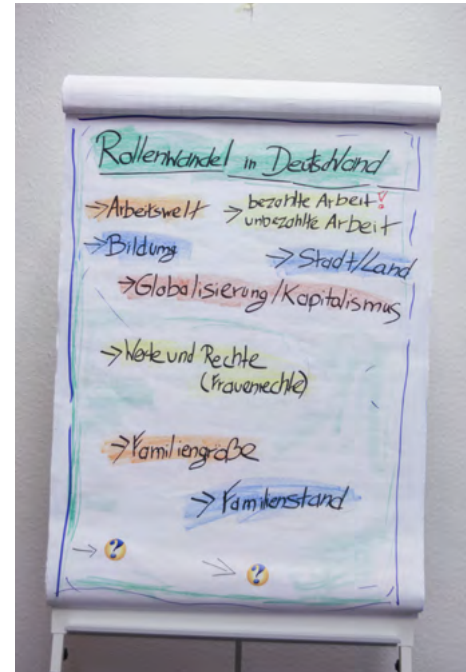 Rollenwandel in Deutschland
→Arbeitswelt
→bezahlte Arbeit!
unbezahlte Arbeit
→Bildung
→Stadt/Land
→Globalisierung/Kapitalismus
→Werte und Rechte
(Frauenrechte)
→Familiengröße
→Familienstand
→?
→?